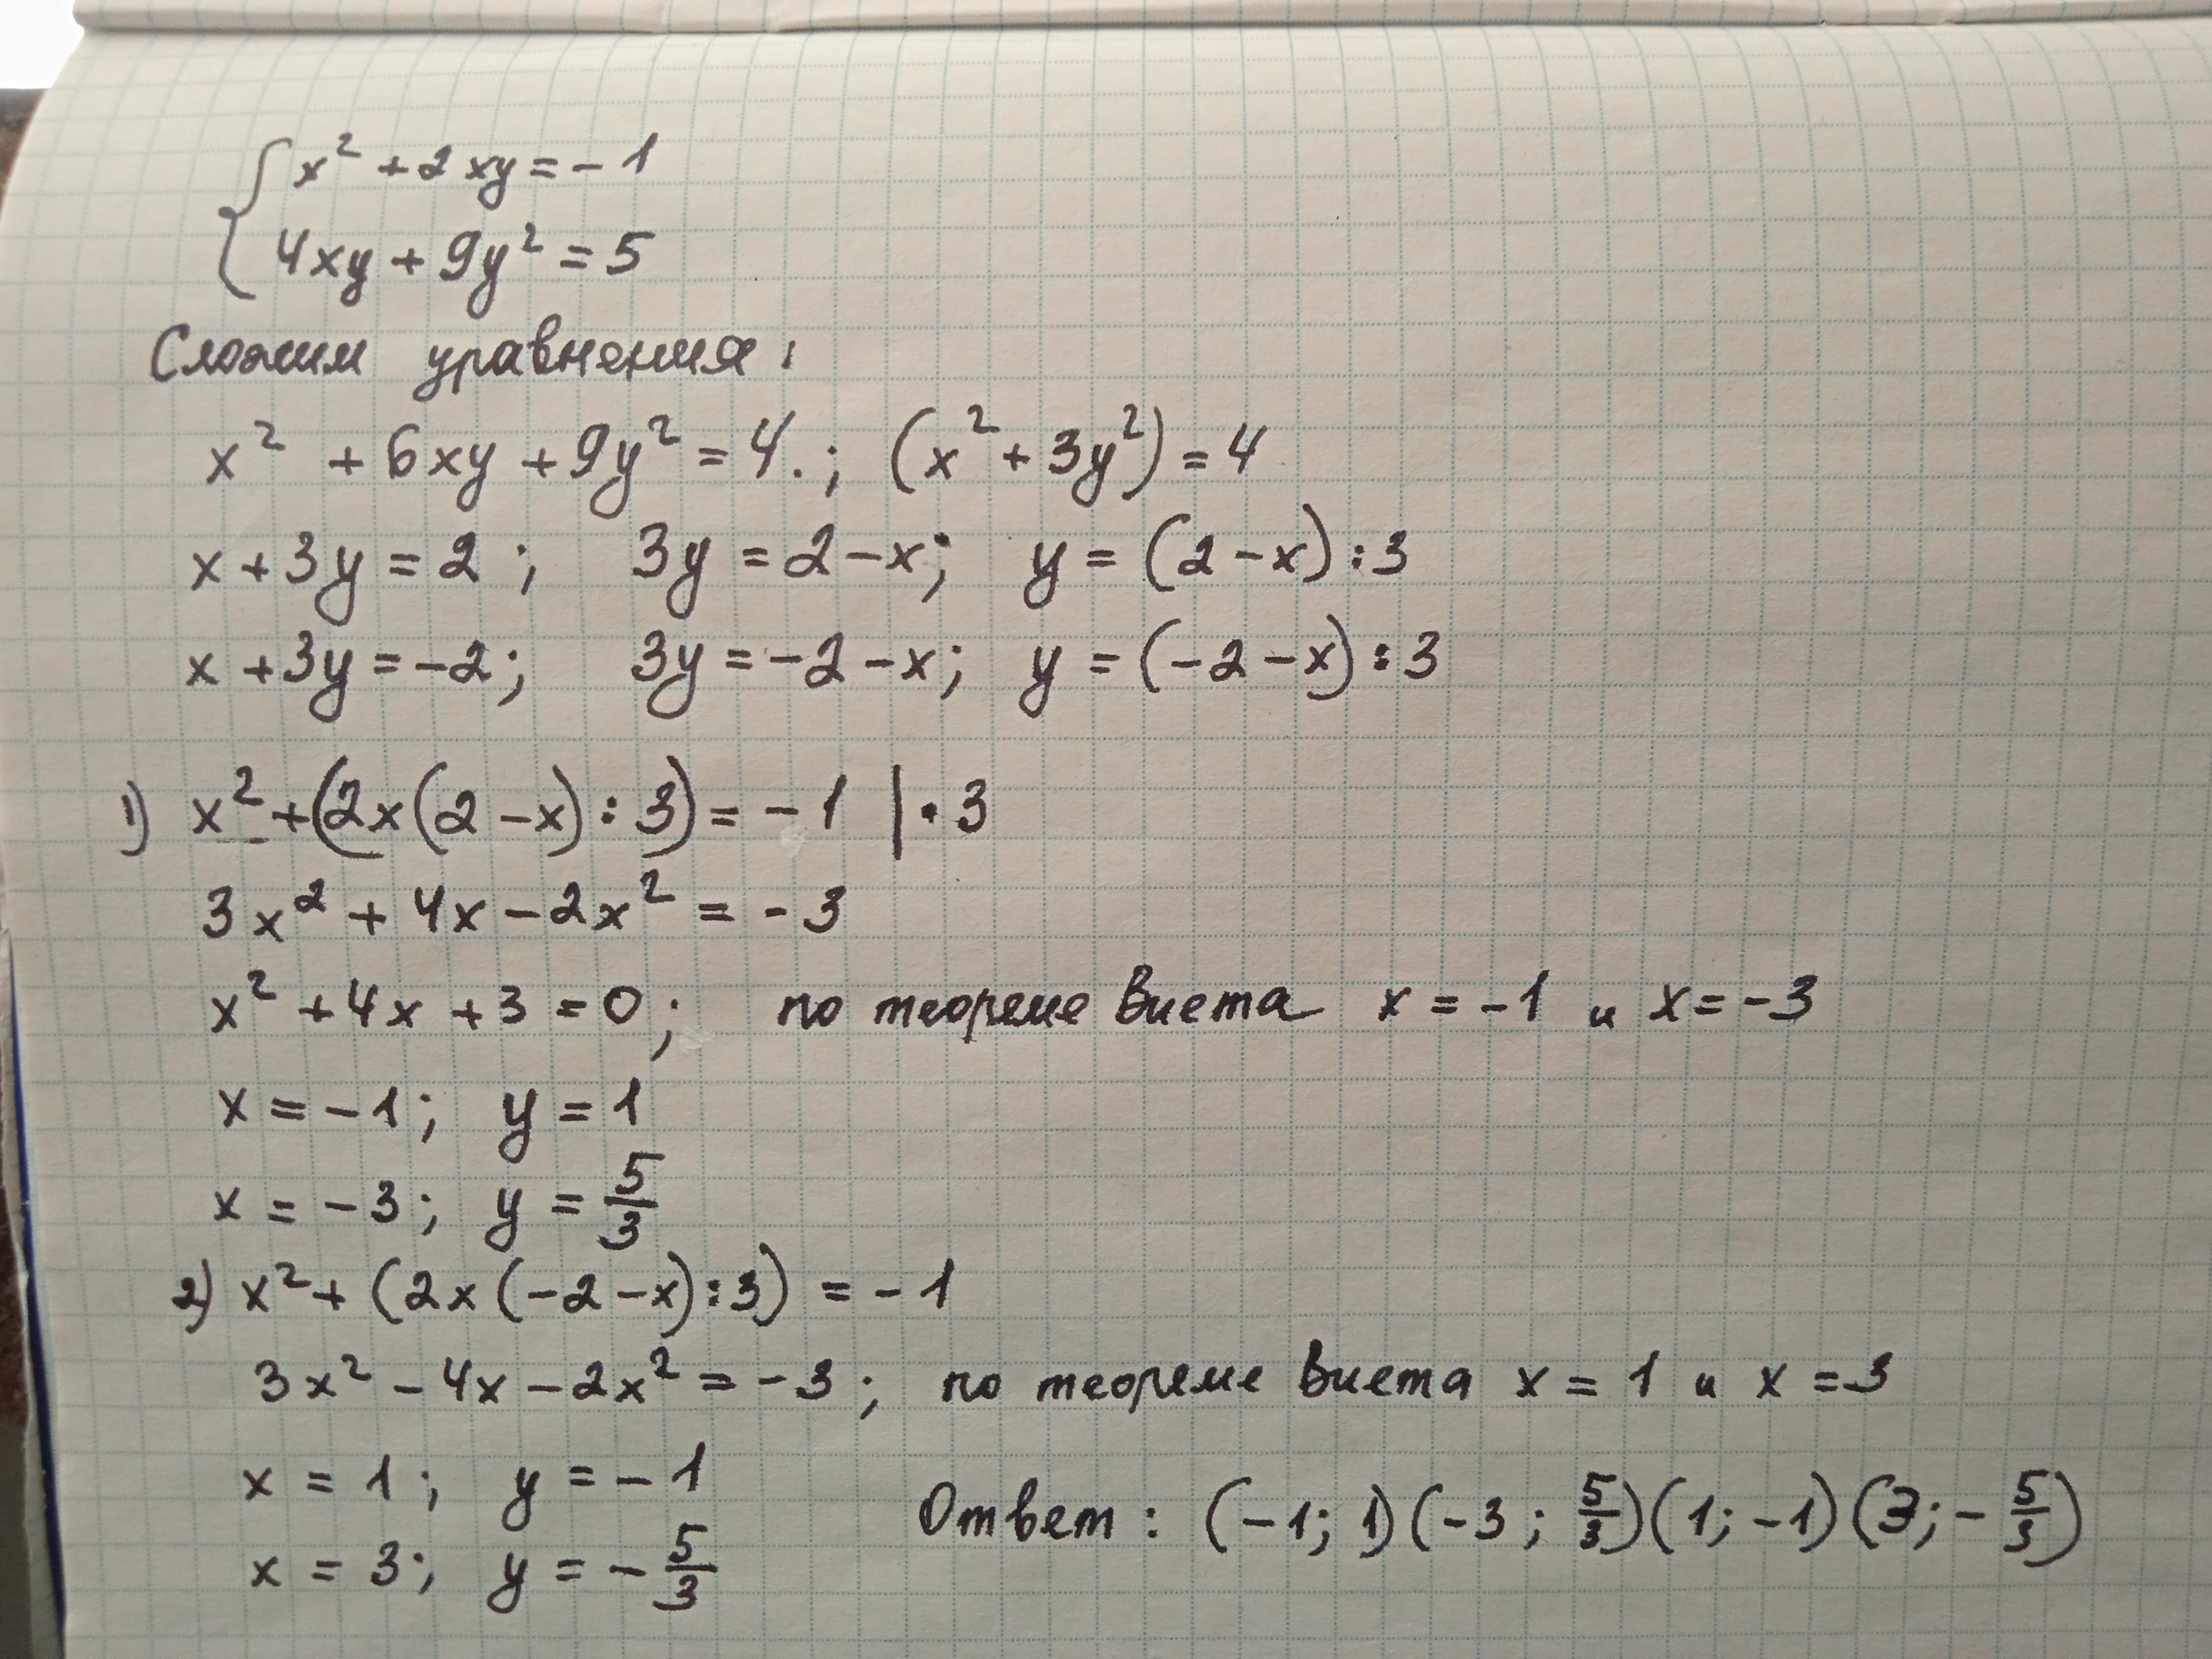 { x² + 2xy = -1
4xy + 9y² = 5
Сложим уравнения:
x² + 6xy + 9y² = 4.; (x² + 3y²) = 4
x + 3y = 2; 3y = 2 - x; y = (2 - x) : 3
x + 3y = -2; 3y = -2 - x; y = (-2 - x) : 3
1) x² + (2x(2 - x) : 3) = -1 | · 3
3x² + 4x - 2x² = -3
x² + 4x + 3 = 0; по теореме Виета x = -1 и x = -3
x = -1; y = 1
x = -3; y = 5/3
2) x² + (2x(-2 - x) : 3) = -1
3x² - 4x - 2x² = -3; по теореме Виета x = 1 и x = 3
x = 1; y = -1
x = 3; y = -5/3
Ответ: (-1; 1) (-3; 5/3) (1; -1) (3; -5/3)